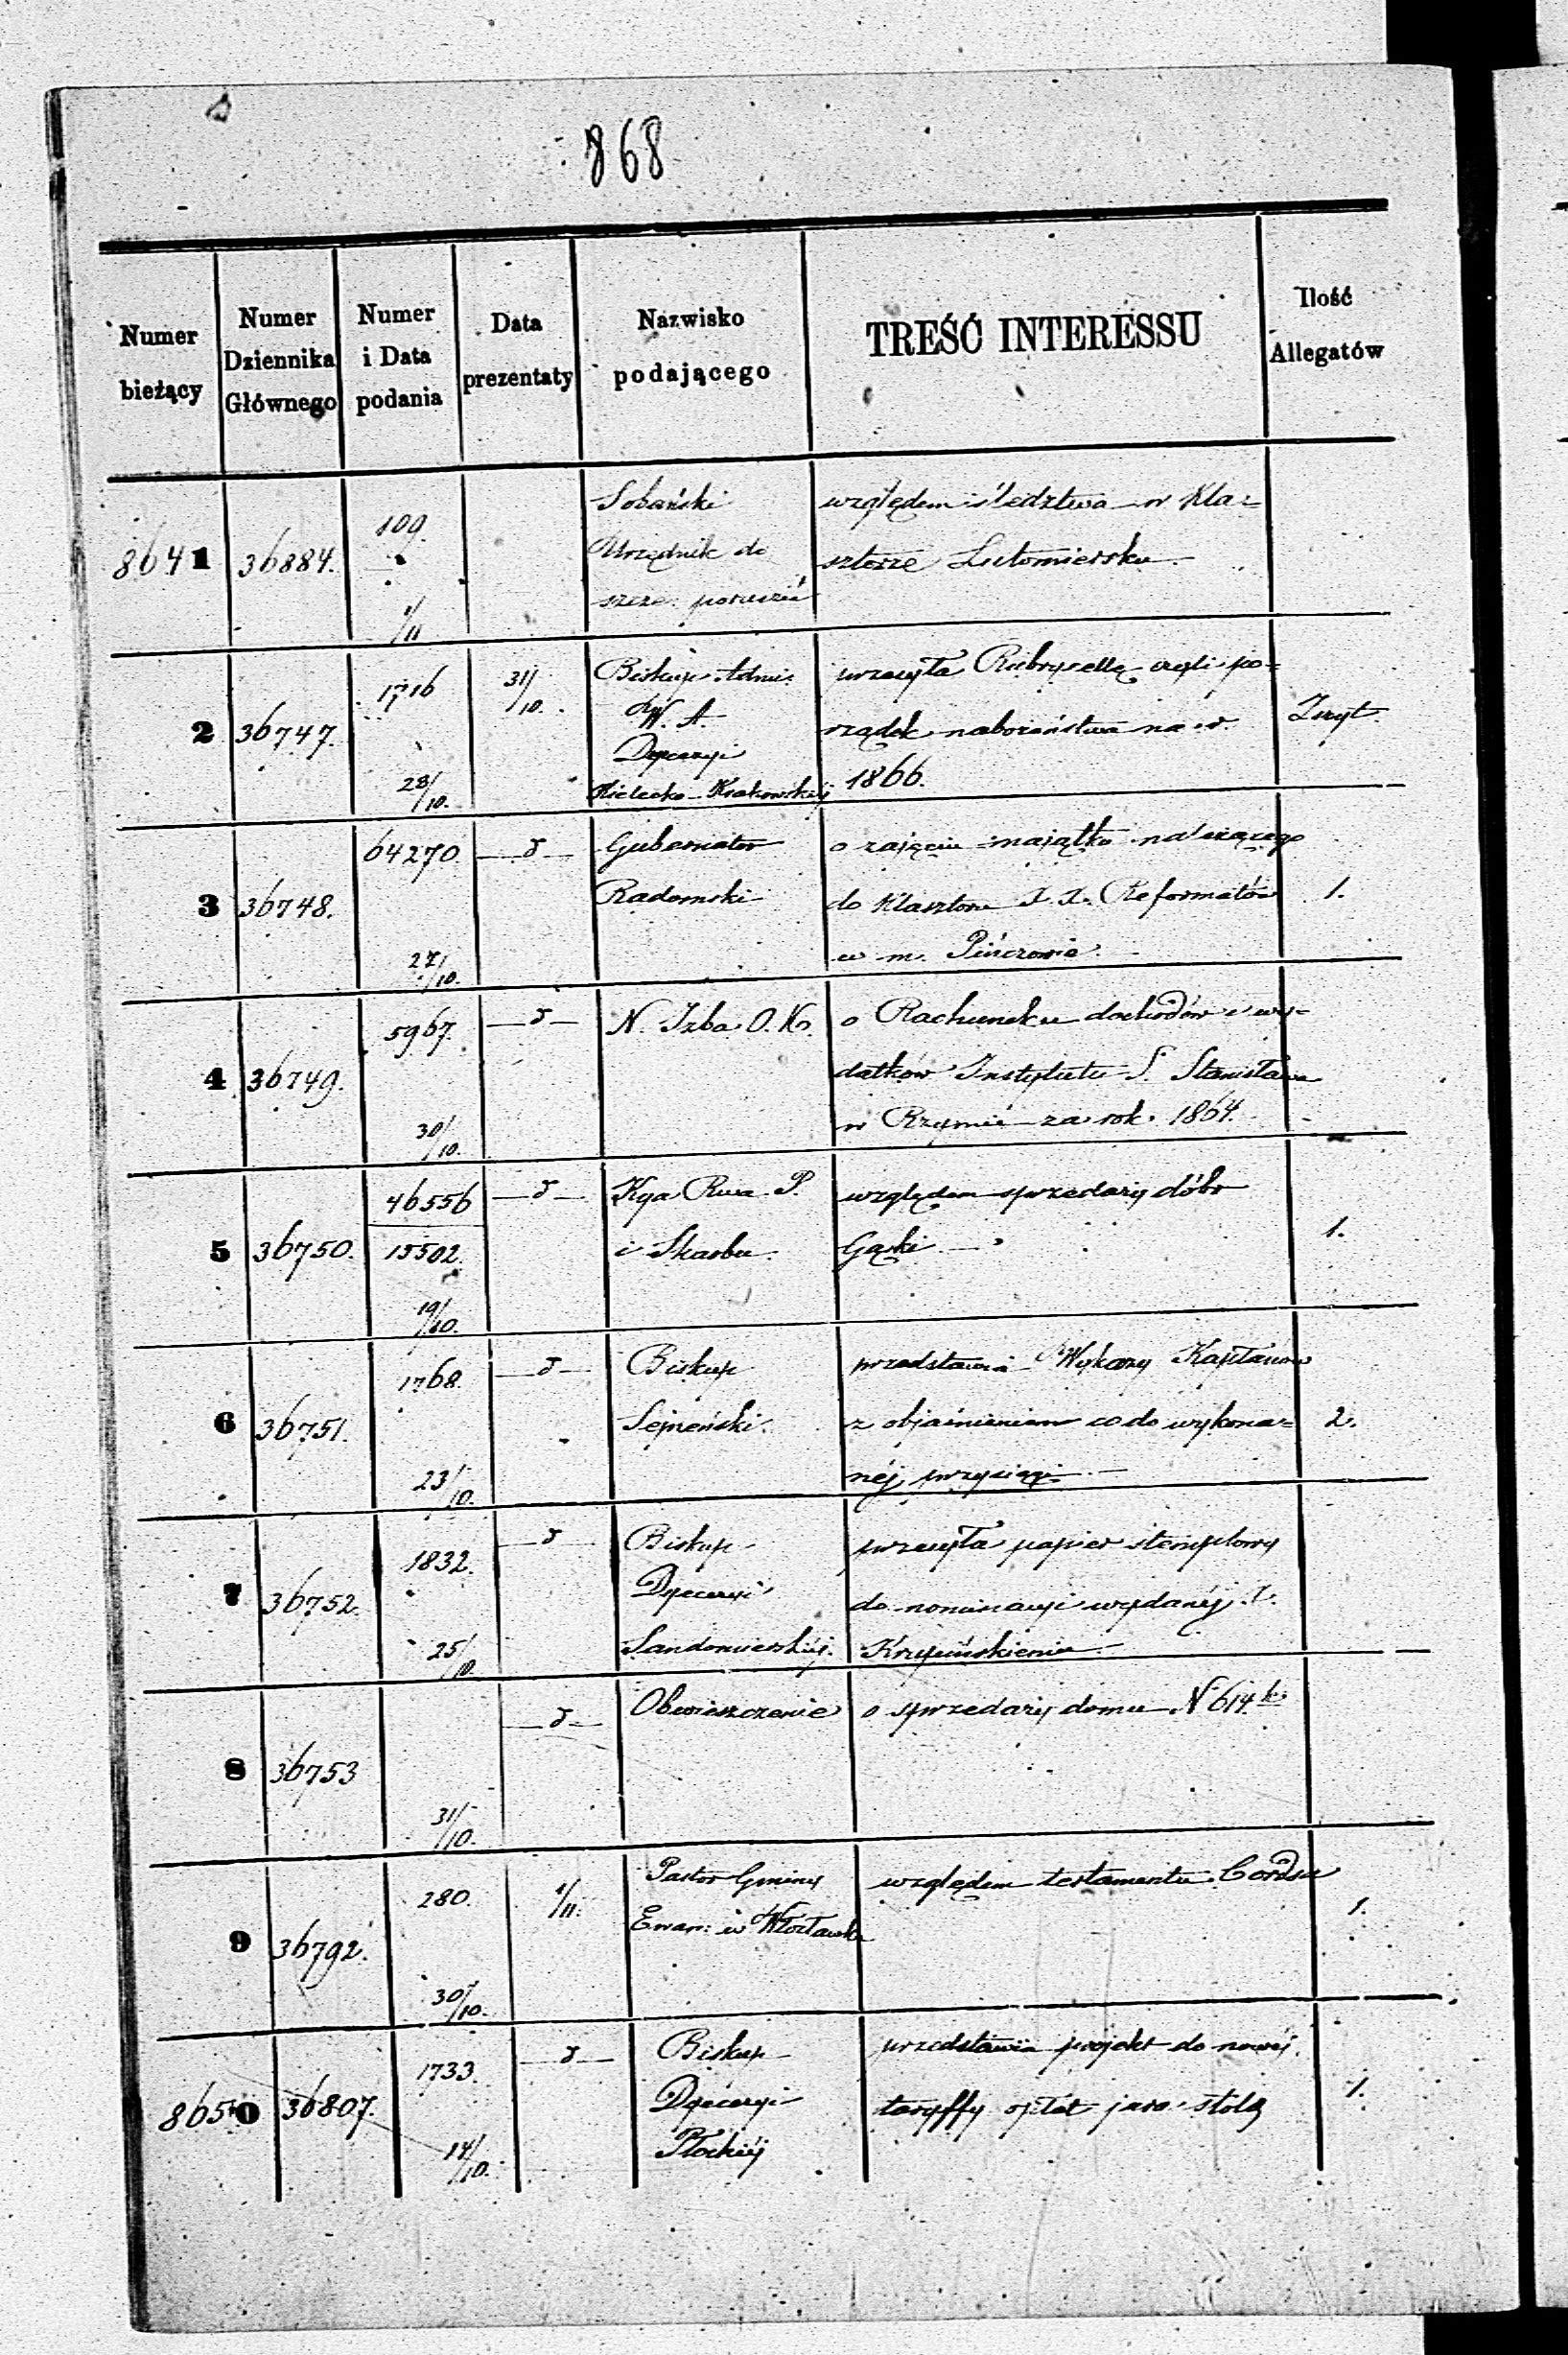 868
Numer bieżący
Numer Dziennika Głównego
Numer i Data podania
Data prezentaty
Nazwisko podającego
TREŚĆ INTERESSU
Ilość Allegatów
8641 36884. 109. 1/11
Sobański
Urzędnik do
szcze. poruczeń
względem śledztwa w Kla=
sztorze Lutomiersku
2 36747. 1716 28/10. 31/10.
Biskup Admi:
W. A.
Dyecezyi
Kielecko-Krakowskiej
przesyła Rubrycellę czyli po=
rządek nabożeństwa na r.
1866.
Zszyt.
3 36748. 64270 27/10.
Gubernator
Radomski
o zajęciu majątku należącego
do Klasztoru X. X. Reformatów
w m. Pińczowie.
1.
4 36749. 5967. 30/10.
N. Izba O. K.
o Rachunku dochodów i wy=
datków Instytutu S. Stanisława
w Rzymie za rok 1864.
5 36750. 46556 15502. 19/10.
Kya Rwa P.
i Skarbu
względem sprzedaży dóbr
Gąski
1.
6 36751. 1768. 23/10.
Biskup
Sejneński.
przedstawia Wykazy Kapłanów
z objaśnieniem co do wykona=
néj przysięgi
2.
7 36752. 1832. 25/10.
Biskup
Dyecezyi
Sandomierskiéj.
przesyła papier stemplowy
do nominacyi wydanéj X.
8 36753 31/10.
Obwieszczenie
o sprzedaży domu N 614
9 36792. 280. 30/10. 1/11.
Pastor Gminy
Ewan: w Włocławku
względem testamentu
1.
8650 36807. 1733. 14/10.
Biskup
Dyecezyi
Płockiéj
przedstawia projekt do nowéj
taryffy opłat jura stolæ
1.